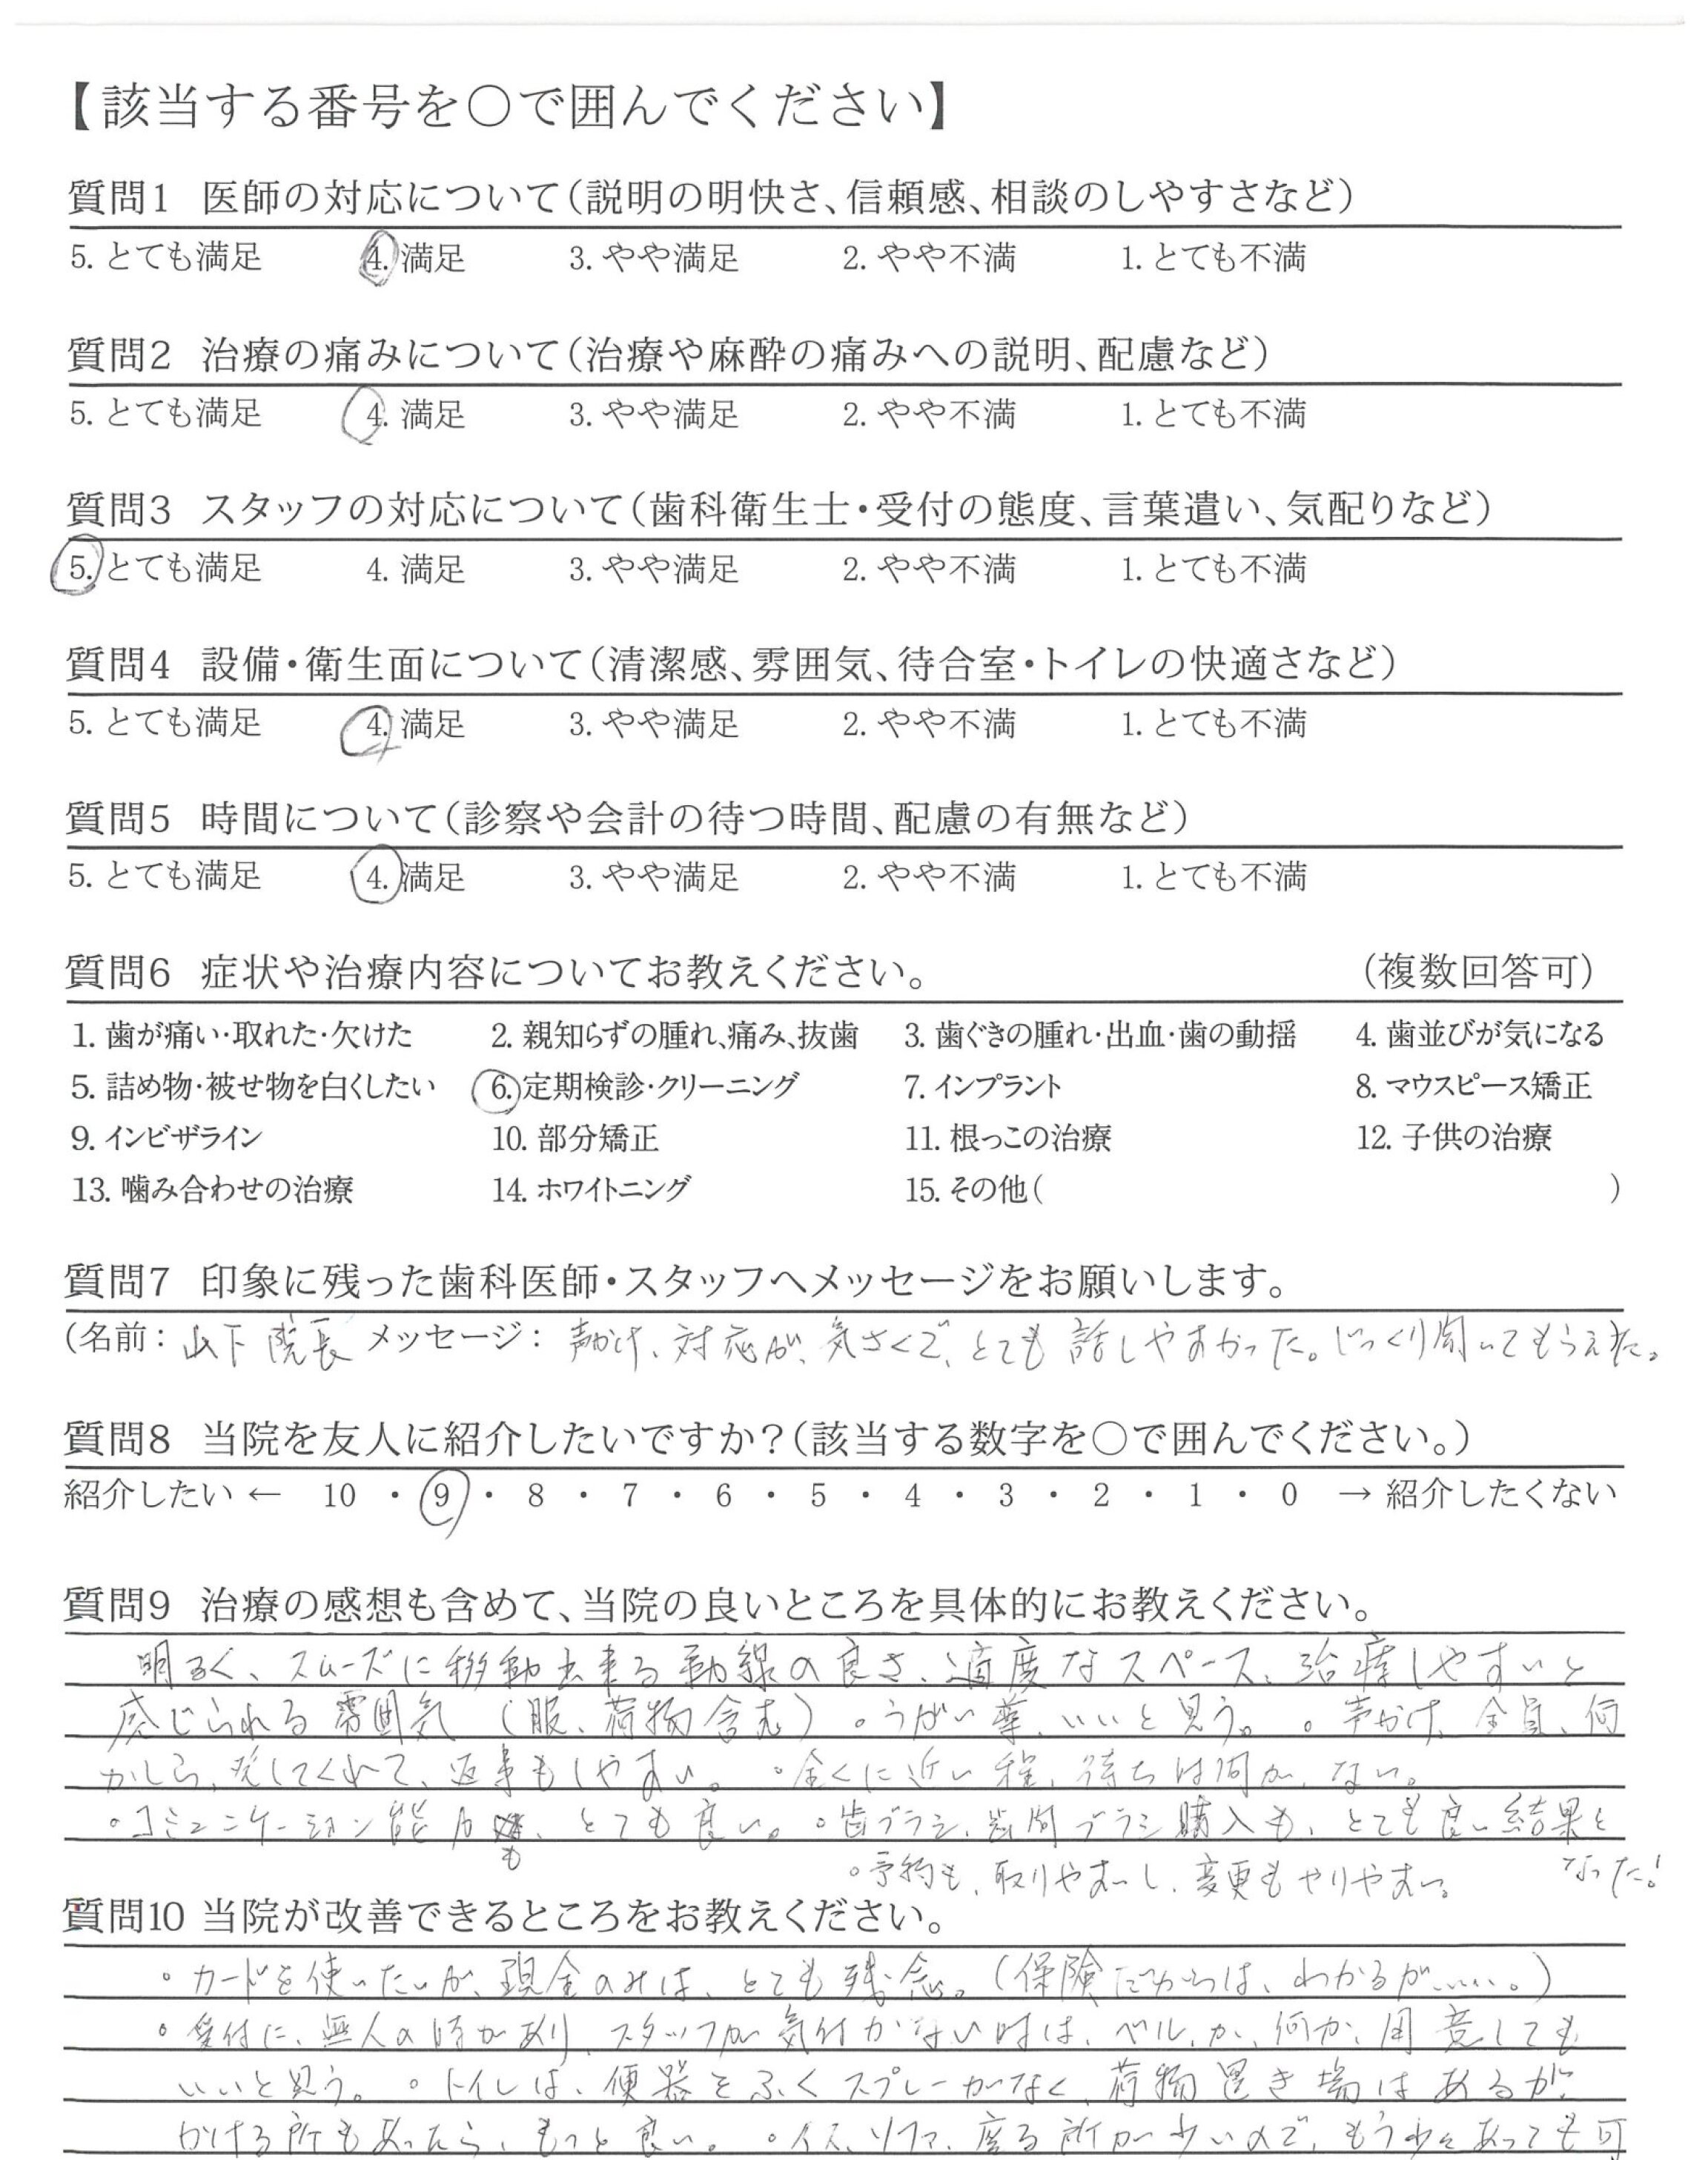 【該当する番号を○で囲んでください】
質問1 医師の対応について(説明の明快さ、信頼感、相談のしやすさなど)
5. とても満足 4. 満足 3. やや満足 2. やや不満 1. とても不満
質問2 治療の痛みについて(治療や麻酔の痛みへの説明、配慮など)
5. とても満足 4. 満足 3. やや満足 2. やや不満 1. とても不満
質問3 スタッフの対応について(歯科衛生士・受付の態度、言葉遣い、気配りなど)
5. とても満足 4. 満足 3. やや満足 2. やや不満 1. とても不満
質問4 設備・衛生面について(清潔感、雰囲気、待合室・トイレの快適さなど)
5. とても満足 4. 満足 3. やや満足 2. やや不満 1. とても不満
質問5 時間について(診察や会計の待つ時間、配慮の有無など)
5. とても満足 4. 満足 3. やや満足 2. やや不満 1. とても不満
質問6 症状や治療内容についてお教えください。 (複数回答可)
1. 歯が痛い・取れた・欠けた 2. 親知らずの腫れ、痛み、抜歯 3. 歯ぐきの腫れ・出血・歯の動揺 4. 歯並びが気になる
5. 詰め物・被せ物を白くしたい 6. 定期検診・クリーニング 7. インプラント 8. マウスピース矯正
9. インビザライン 10. 部分矯正 11. 根っこの治療 12. 子供の治療
13. 噛み合わせの治療 14. ホワイトニング 15. その他( )
質問7 印象に残った歯科医師・スタッフへメッセージをお願いします。
(名前: 山下 院長 メッセージ: 声かけ、対応が、気さくで、とても話しやすかった。じっくり聞いてもらえた。
質問8 当院を友人に紹介したいですか?(該当する数字を○で囲んでください。)
紹介したい ← 10 ・ 9 ・ 8 ・ 7 ・ 6 ・ 5 ・ 4 ・ 3 ・ 2 ・ 1 ・ 0 → 紹介したくない
質問9 治療の感想も含めて、当院の良いところを具体的にお教えください。
明るく、スムーズに移動出来る動線の良さ、適度なスペース、治療しやすいと
感じられる雰囲気 (服、荷物含む)。うがい薬、いいと思う。 。声かけ、全員、何
かしら、発してくれて、返事もしやすい。 ・全くに近い程、待ちは何か、ない。
・コミュニケーション能力も、とても良い。 。歯ブラシ、歯間ブラシ購入も、とても良い結果と
なった!
。予約も、取りやすいし、変更もやりやすい。
質問10 当院が改善できるところをお教えください。
。カードを使いたいが、現金のみは、とても残念。(保険だからは、わかるが……。)
。受付に、無人の時があり、スタッフが気付かない時は、ベル、か、何か、用意しても
いいと思う。 。トイレは、便器をふくスプレーがなく、荷物置き場はあるが
かける所もあったら、もっと良い。 。イス、ソファ、座る所が少いので、もう少々あっても可